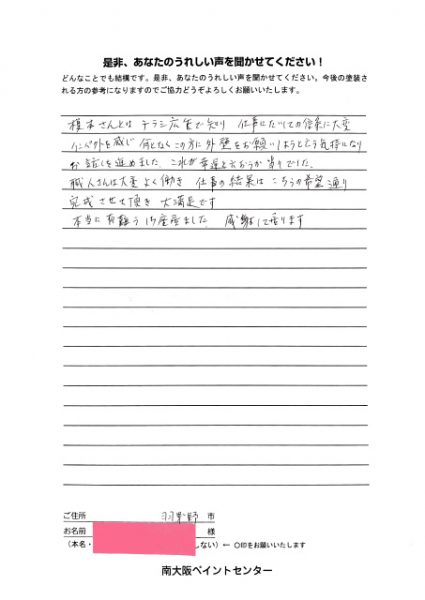 是非、あなたのうれしい声を聞かせてください！
どんなことでも結構です。是非、あなたのうれしい声を聞かせてください。今後の塗装さ
れる方の参考になりますのでご協力どうぞよろしくお願いいたします。
榎本さんとは チラシ広告で知り 仕事についての信条に大変
インパクトを感じ 何となくこの方に外壁をお願いしようという気持になり
お話しを進めました。これが幸運と云おうか当りでした。
職人さんは大変よく働き 仕事の結果は こちらの希望通り
完成させて頂き 大満足です
本当に有難う御座居ました 感謝して居ります
ご住所 羽曳野 市
お名前 様
（本名・ しない）← ○印をお願いいたします
南大阪ペイントセンター